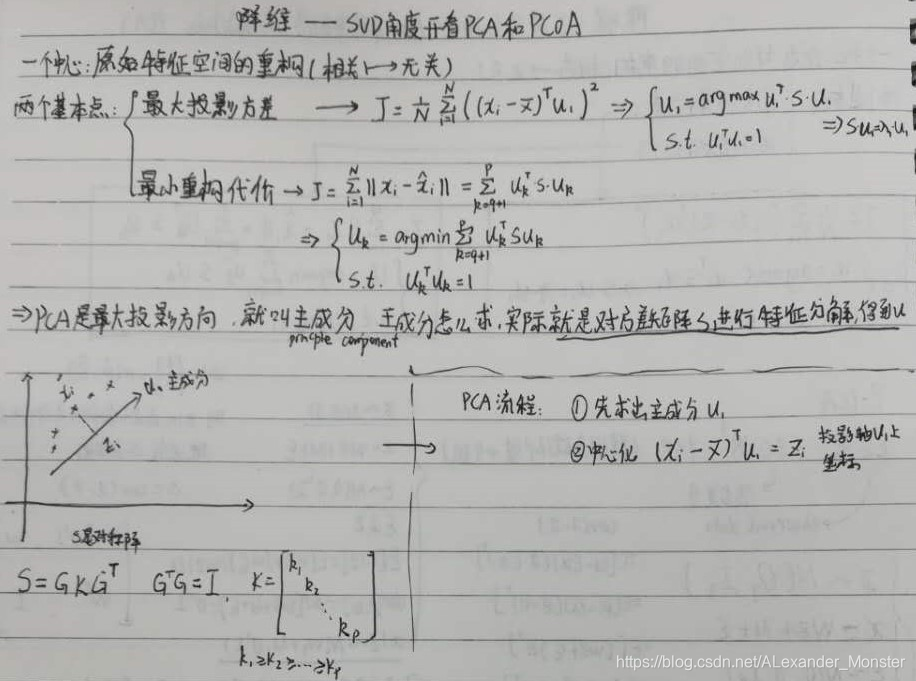 降维 —— SVD角度再看PCA和PCoA
一个中心:原始特征空间的重构(相关 ↦ 无关)
两个基本点: { 最大投影方差 → J = 1/N Σ_{i=1}^{N} ((x_i - x̄)^T u_1)^2 ⇒ { u_1 = argmax u_1^T·S·u_1
s.t. u_1^T u_1 = 1 ⇒ Su_1 = λ·u_1
最小重构代价 → J = Σ_{i=1}^{N} ||x_i - x̂_i|| = Σ_{k=q+1}^{P} u_k^T·S·u_k
⇒ { u_k = argmin Σ_{k=q+1}^{P} u_k^T S u_k
s.t. u_k^T u_k = 1
⇒ PCA是最大投影方向,就叫主成分,主成分怎么求,实际就是对方差矩阵S进行特征分解,得到U
principle component
x_i u_1 主成分
z_i
PCA流程: ① 先求出主成分 u_1
② 中心化 (x_i - x̄)^T u_1 = z_i 投影轴u_1上
坐标
S是对称阵
S = GKG^T G^TG = I, K = [k_1 k_2 ⋱ k_p]
k_1 ≥ k_2 ≥ … ≥ k_p
https://blog.csdn.net/ALexander_Monster